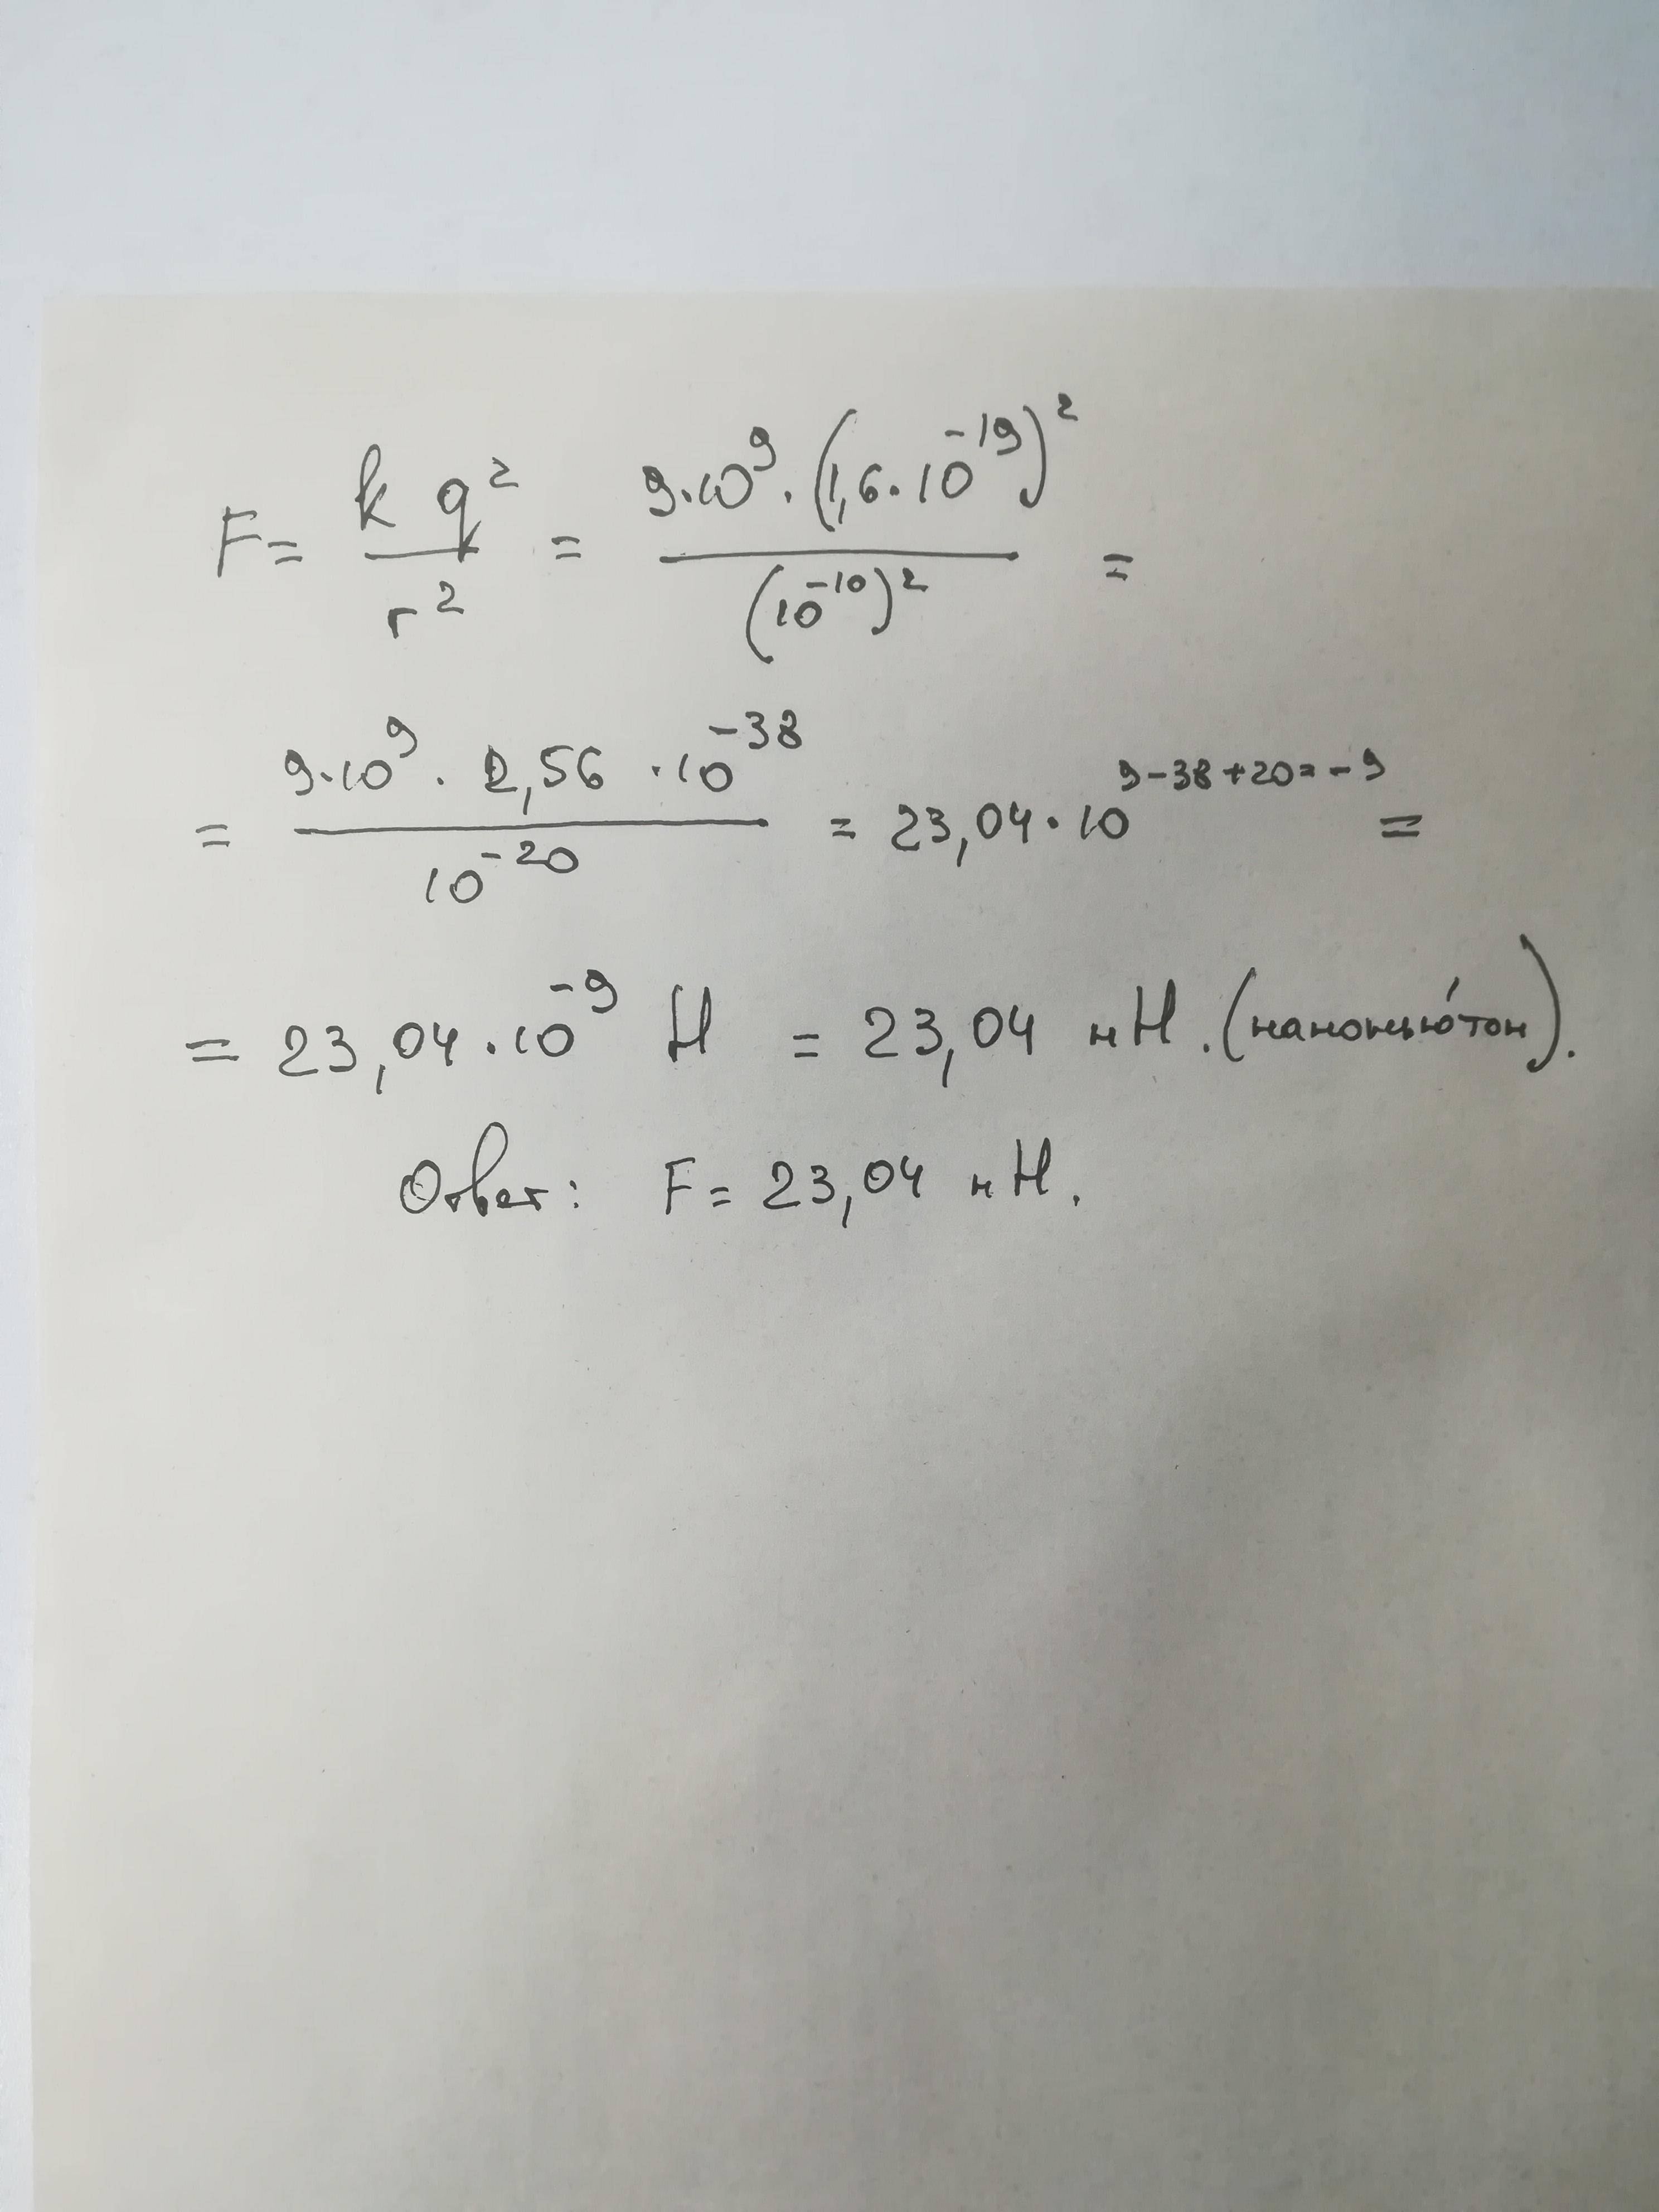 F = k q² / r² = 9·10⁹ · (1,6·10⁻¹⁹)² / (10⁻¹⁰)² =
= 9·10⁹ · 2,56 · 10⁻³⁸ / 10⁻²⁰ = 23,04·10⁹⁻³⁸⁺²⁰⁼⁻⁹ =
= 23,04·10⁻⁹ Н = 23,04 нН. (наноньюто́н).
Ответ: F = 23,04 нН.